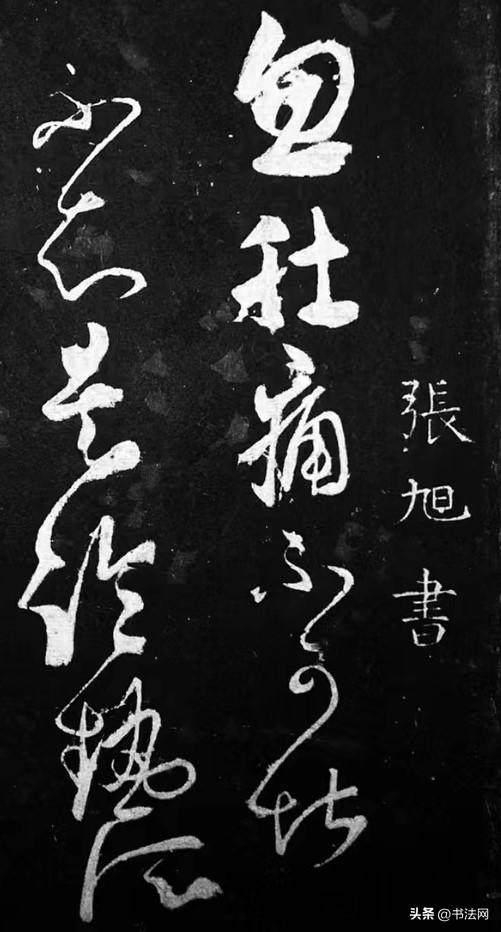 張旭書
忽肚痛不可堪
不知是冷熱所
头条 @书法网